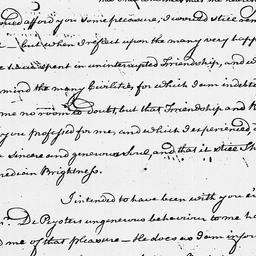 afford you some pleasure, I would still
but when I reflect upon the many very happ
have spent in uninterrupted Friendship, and
mind the many Civilities for which I am indebte
me no room to doubt, but that Friendship and
you professed for me, and which I experienced,
a sincere and generous Soul, and that it still Sh
Brightness.
I intended to have been with you
De Peysters ungenerous behaviour to me ha
me of that pleasure — He does as I am infor